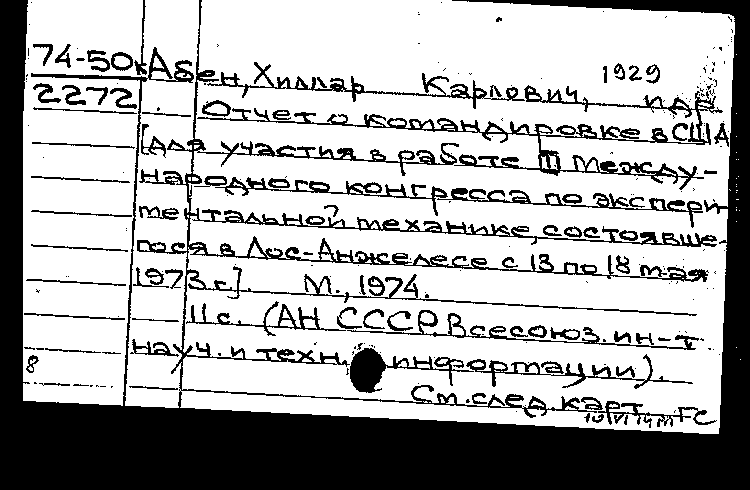 74-50к Абен, Хиллар Карлович, 1929
2272 . Отчет о командировке в США
[для участия в работе III Между-
народного конгресса по экспери-
ментальной механике, состоявше-
гося в Лос-Анжелесе с 13 по 18 мая
1973 г.]. М., 1974.
11 с. (АН СССР. Всесоюз. ин-т
науч. и техн. информации).
8 См. след. карт. ГС